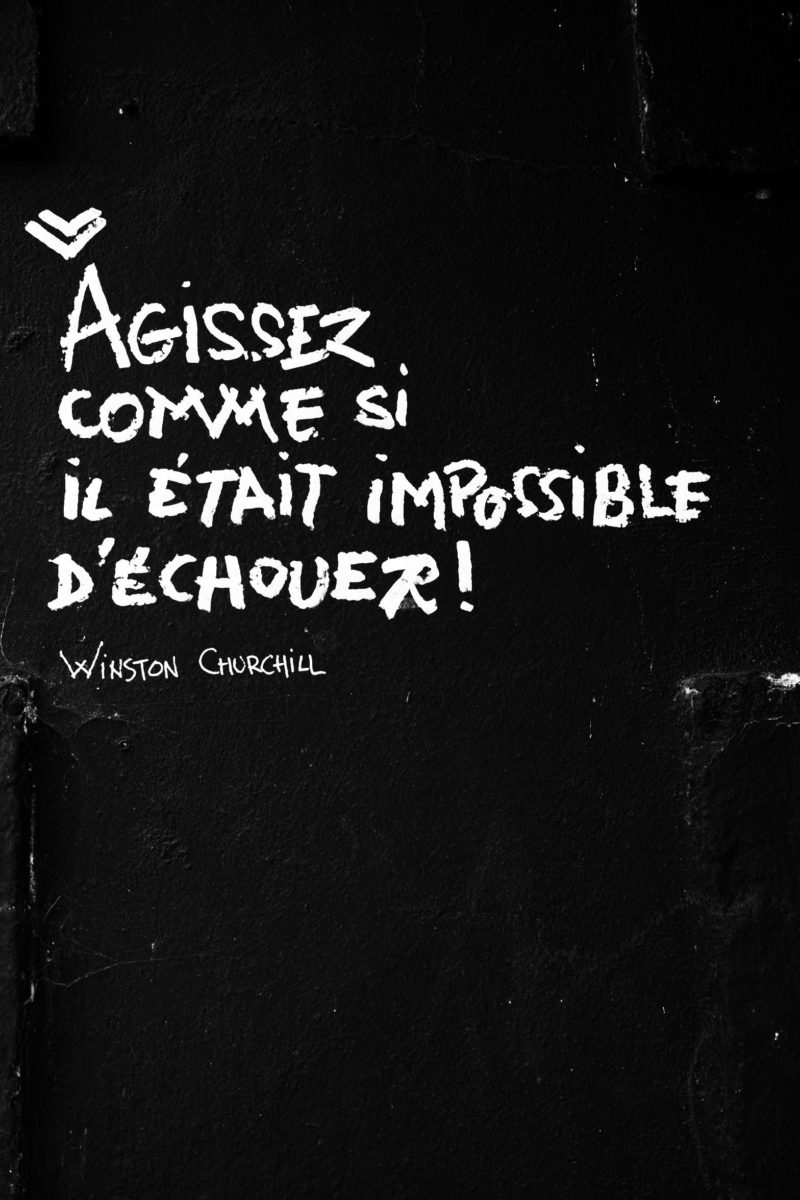 Agissez
comme si
il était impossible
d'échouer!
Winston Churchill